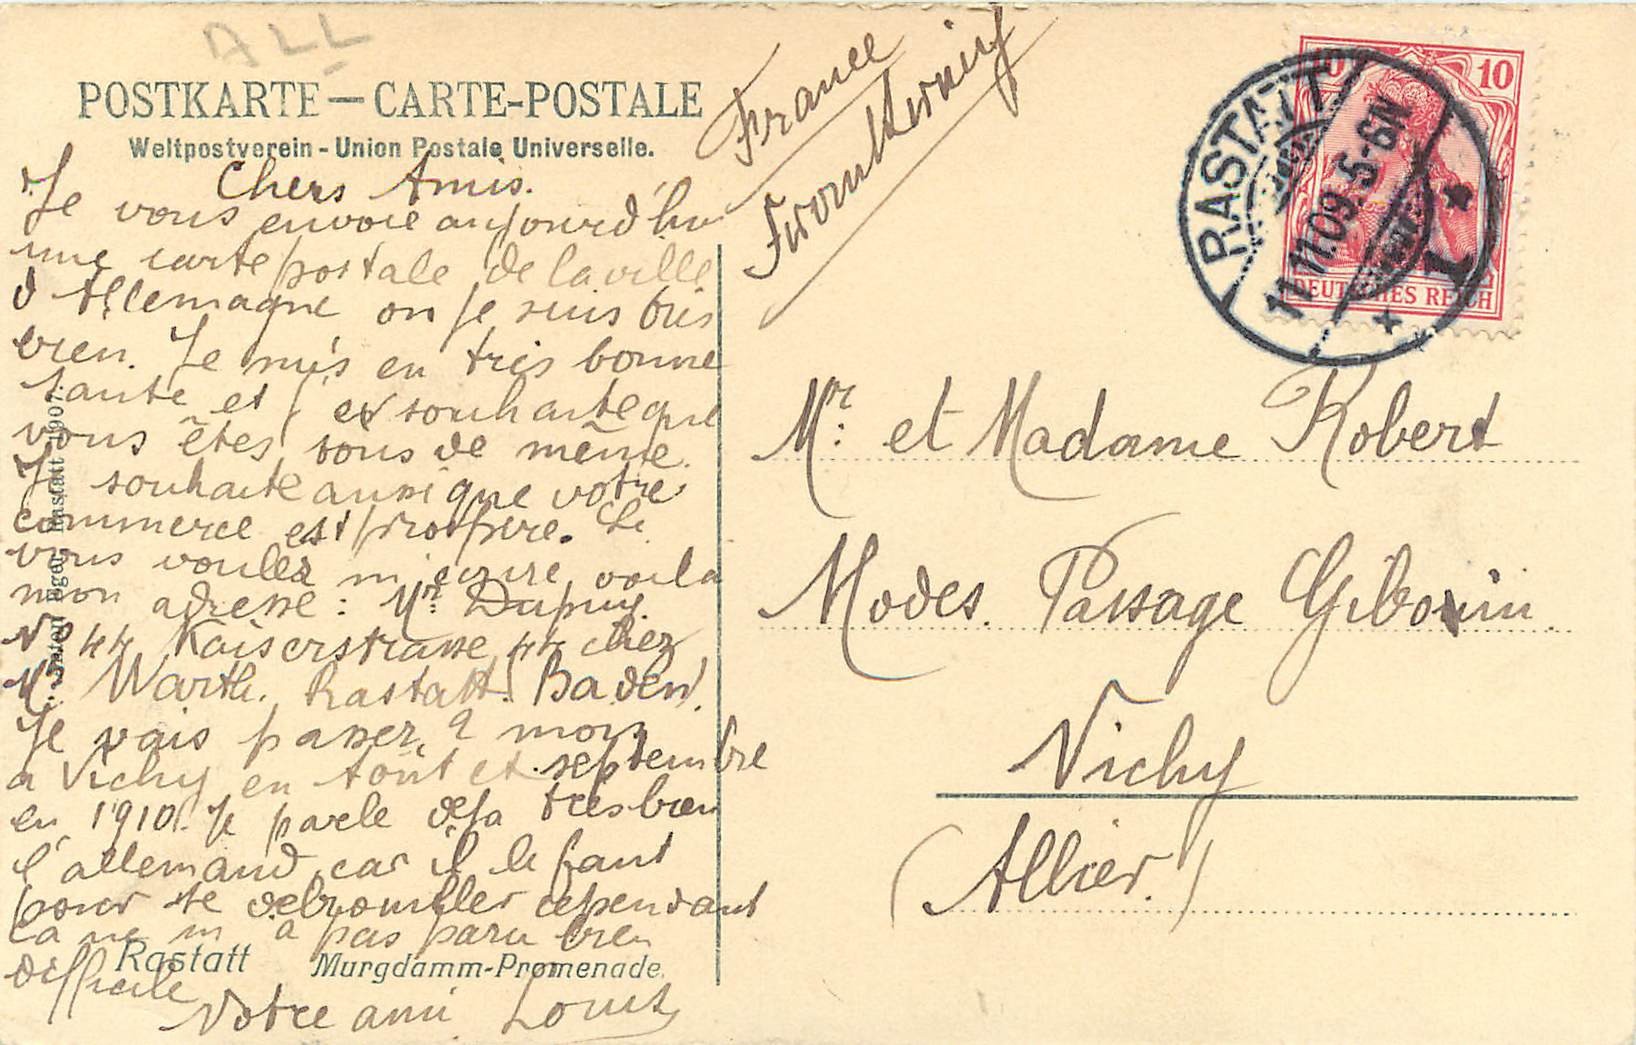 ALL
POSTKARTE — CARTE-POSTALE
Weltpostverein - Union Postale Universelle.
France
Chers Amis.
Je vous envoie aujourd'hui
une carte postale de la ville
d'Allemagne ou je suis très
bien. Je suis en très bonne
santé et souhaite que
vous êtes tous de même.
Je souhaite aussi que votre
commerce est prospère. Si
vous voulez m'ecrire voila
mon adresse : Mr. Dupuy.
No 44 Kaiserstrasse 44 chez
Mr Warth. Rastatt. Baden.
Je vais passer 2 mois
a Vichy en tout et septembre
en 1910. Je parle deja tres bien
l'allemand car il le faut
pour se debrouiller cependant
ca ne m'a pas paru bien
difficile
Votre ami Louis
Rastatt Murgdamm-Promenade.
Rastatt 1907.
10 10
DEUTSCHES REICH
RASTATT
11.11.09. 5-6N
* 1 *
Mr. et Madame Robert
Modes. Passage Giboin.
Vichy
(Allier.)